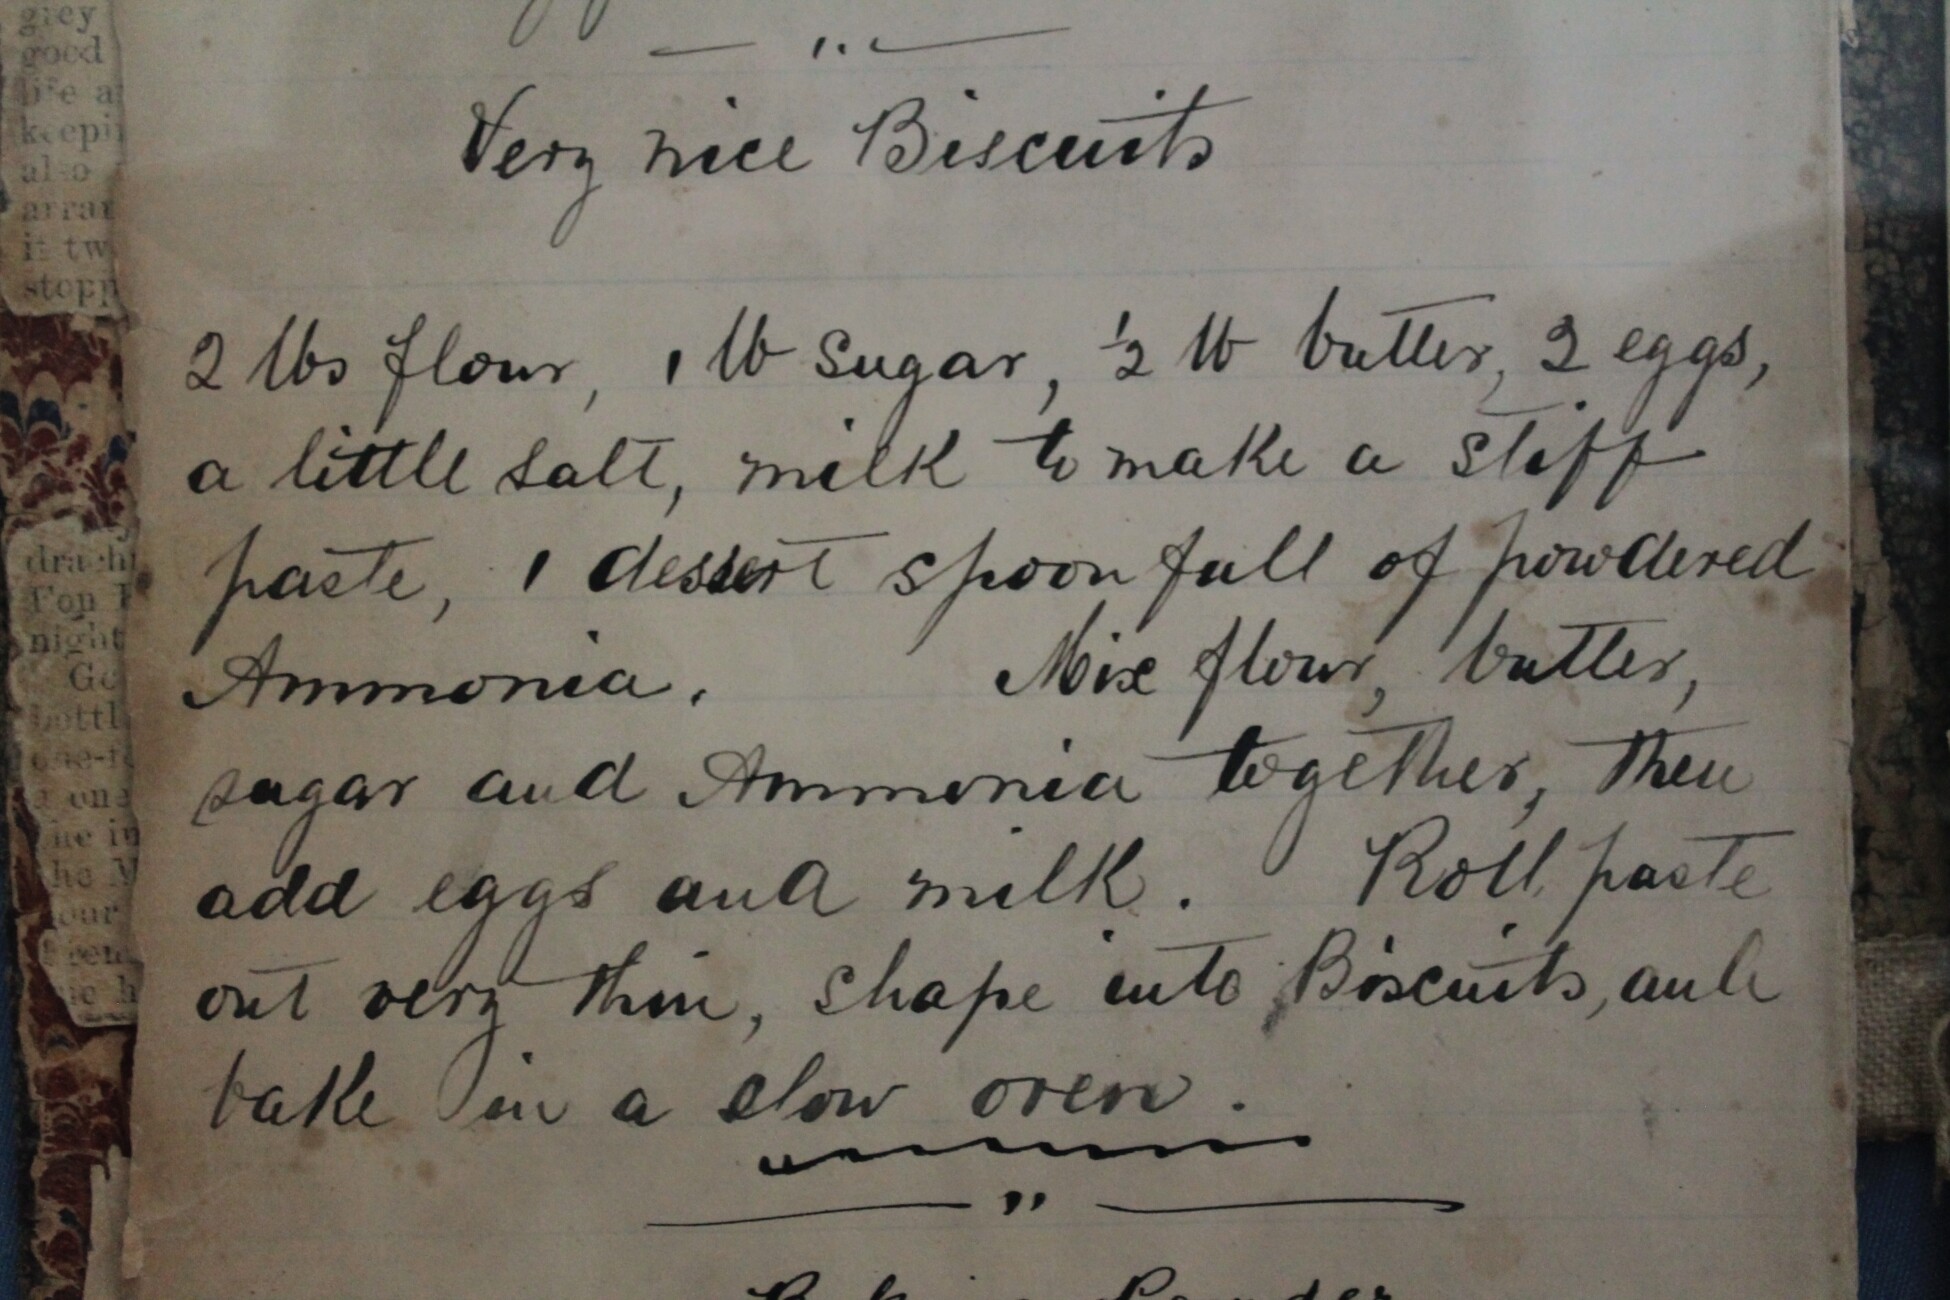 grey
good
life a
keepi
also
arran
it tw
stopp
night
Very nice Biscuits
2 lbs flour, 1 lb sugar, ½ lb butter, 2 eggs,
a little salt, milk to make a stiff
paste, 1 dessert spoon full of powdered
Ammonia. Mix flour, butter,
sugar and Ammonia together, then
add eggs and milk. Roll paste
out very thin, shape into Biscuits, and
bake in a slow oven.
Baking Powder